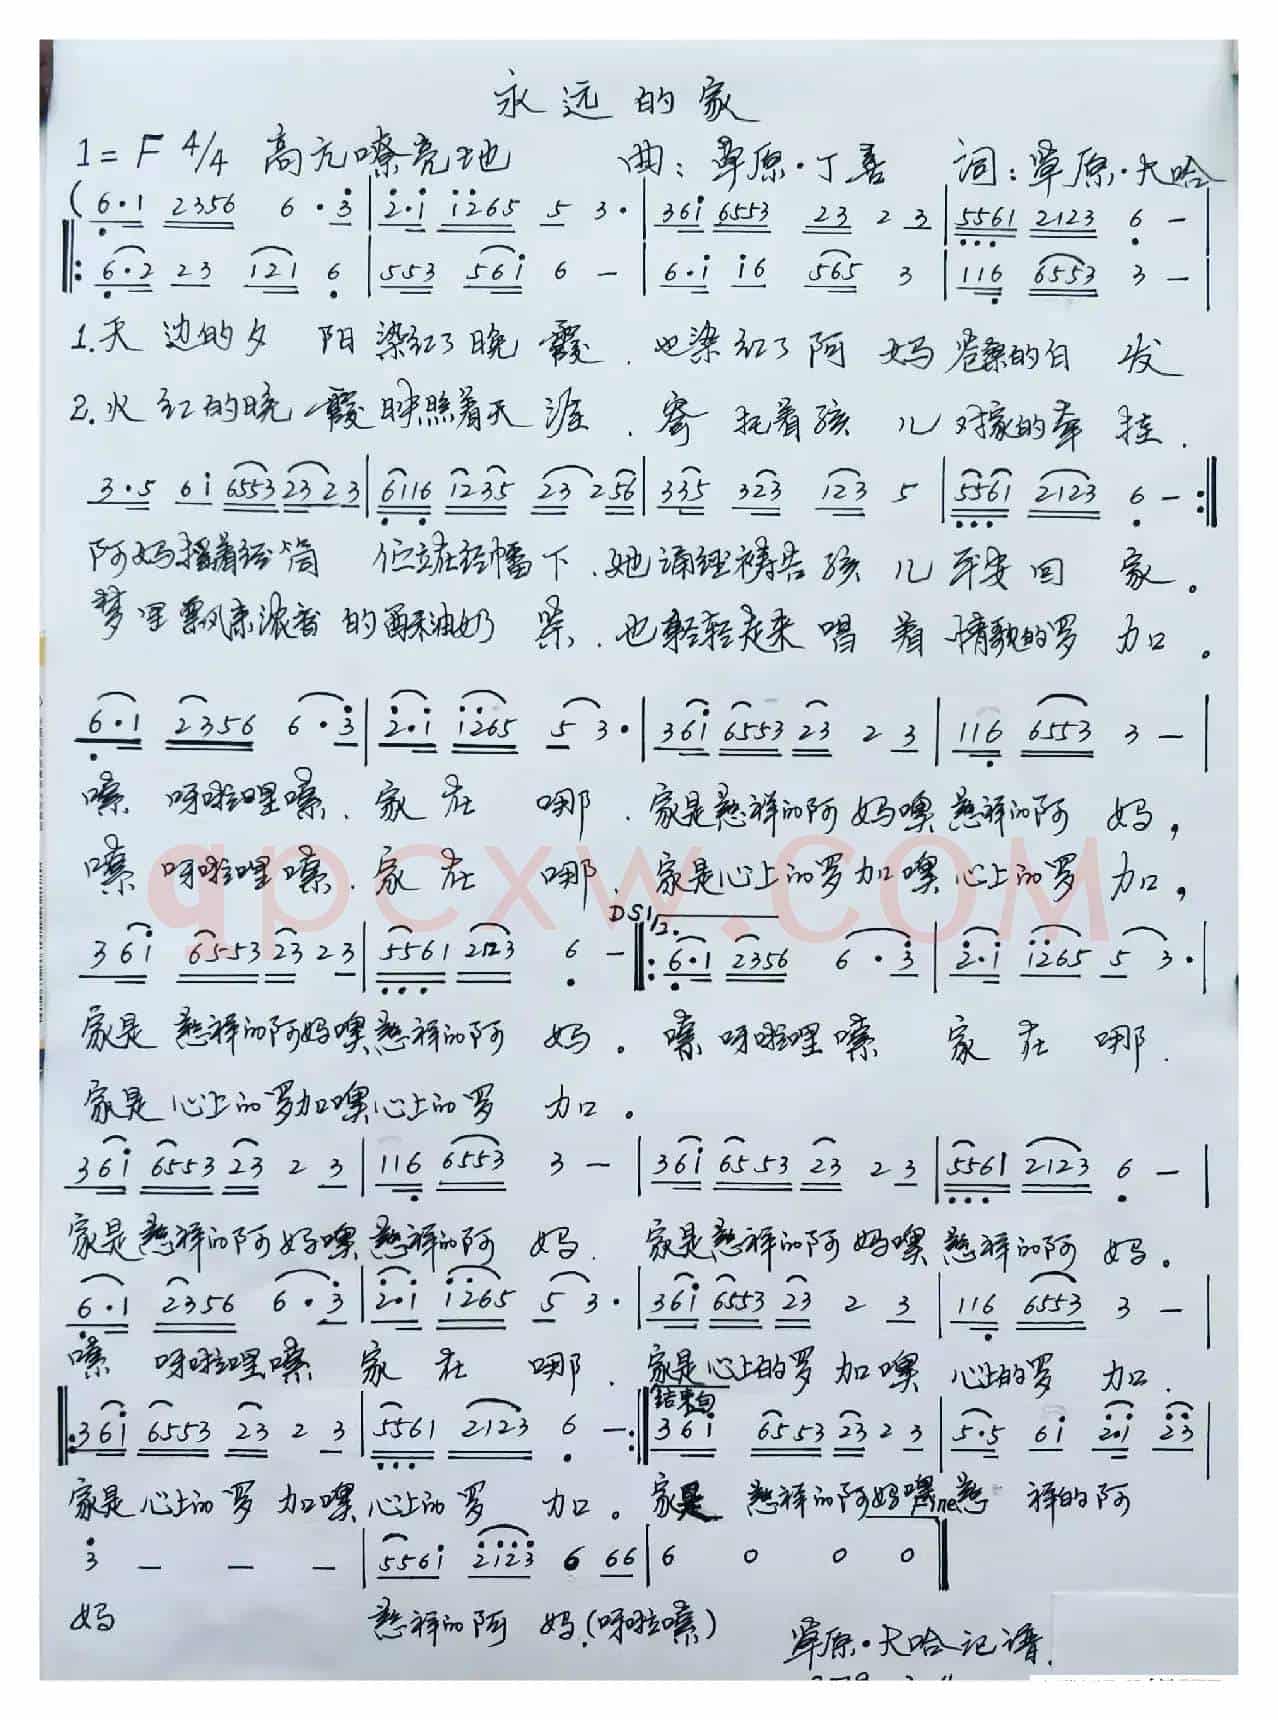 永远的家
1=F 4/4 高亢嘹亮地 曲:草原·丁喜 词:草原·大哈
(6·1 2356 6·3 | 2·i i265 5 3· | 36i 6553 23 2 3 | 5561 2123 6 -
6·2 23 121 6 | 553 56i 6 - | 6·i i6 565 3 | 116 6553 3 - |
1.天边的夕阳染红了晚霞.也染红了阿妈苍桑的白发
2.火红的晚霞映照着天涯.寄托着孩儿对家的牵挂.
3·5 6i 6553 23 23 | 6116 1235 23 256 | 335 323 123 5 | 5561 2123 6 - :
阿妈摇着经筒伫立在经幡下.她诵经祷告孩儿平安回家。
梦里飘来浓香的酥油奶茶.也轻轻走来唱着情歌的罗加。
6·1 2356 6·3 | 2·i i265 5 3· | 36i 6553 23 2 3 | 116 6553 3 - |
嗦呀啦哩嗦.家在哪.家是慈祥的阿妈噢慈祥的阿妈,
嗦呀啦哩嗦.家在哪.家是心上的罗加噢心上的罗加,
qpcxw.com
DS1 2.
36i 6553 23 2 3 | 5561 2123 6 - : 6·1 2356 6·3 | 2·i i265 5 3· |
家是慈祥的阿妈噢慈祥的阿妈。嗦呀啦哩嗦家在哪.
家是心上的罗加噢心上的罗加。
36i 6553 23 2 3 | 116 6553 3 - | 36i 6553 23 2 3 | 5561 2123 6 - |
家是慈祥的阿妈噢慈祥的阿妈.家是慈祥的阿妈噢慈祥的阿妈。
6·1 2356 6·3 | 2·i i265 5 3· | 36i 6553 23 2 3 | 116 6553 3 - |
嗦呀啦哩嗦家在哪.家是心上的罗加噢心上的罗加.
结束句
: 36i 6553 23 2 3 | 5561 2123 6 - : 36i 6553 23 2 3 | 5·5 6i 2·i 23 |
家是心上的罗加噢心上的罗加。家是慈祥的阿妈噢慈祥的阿
Fine
3 - - - | 556i 2123 6 66 | 6 0 0 0
妈 慈祥的阿妈.(呀啦嗦)
草原·大哈记谱.